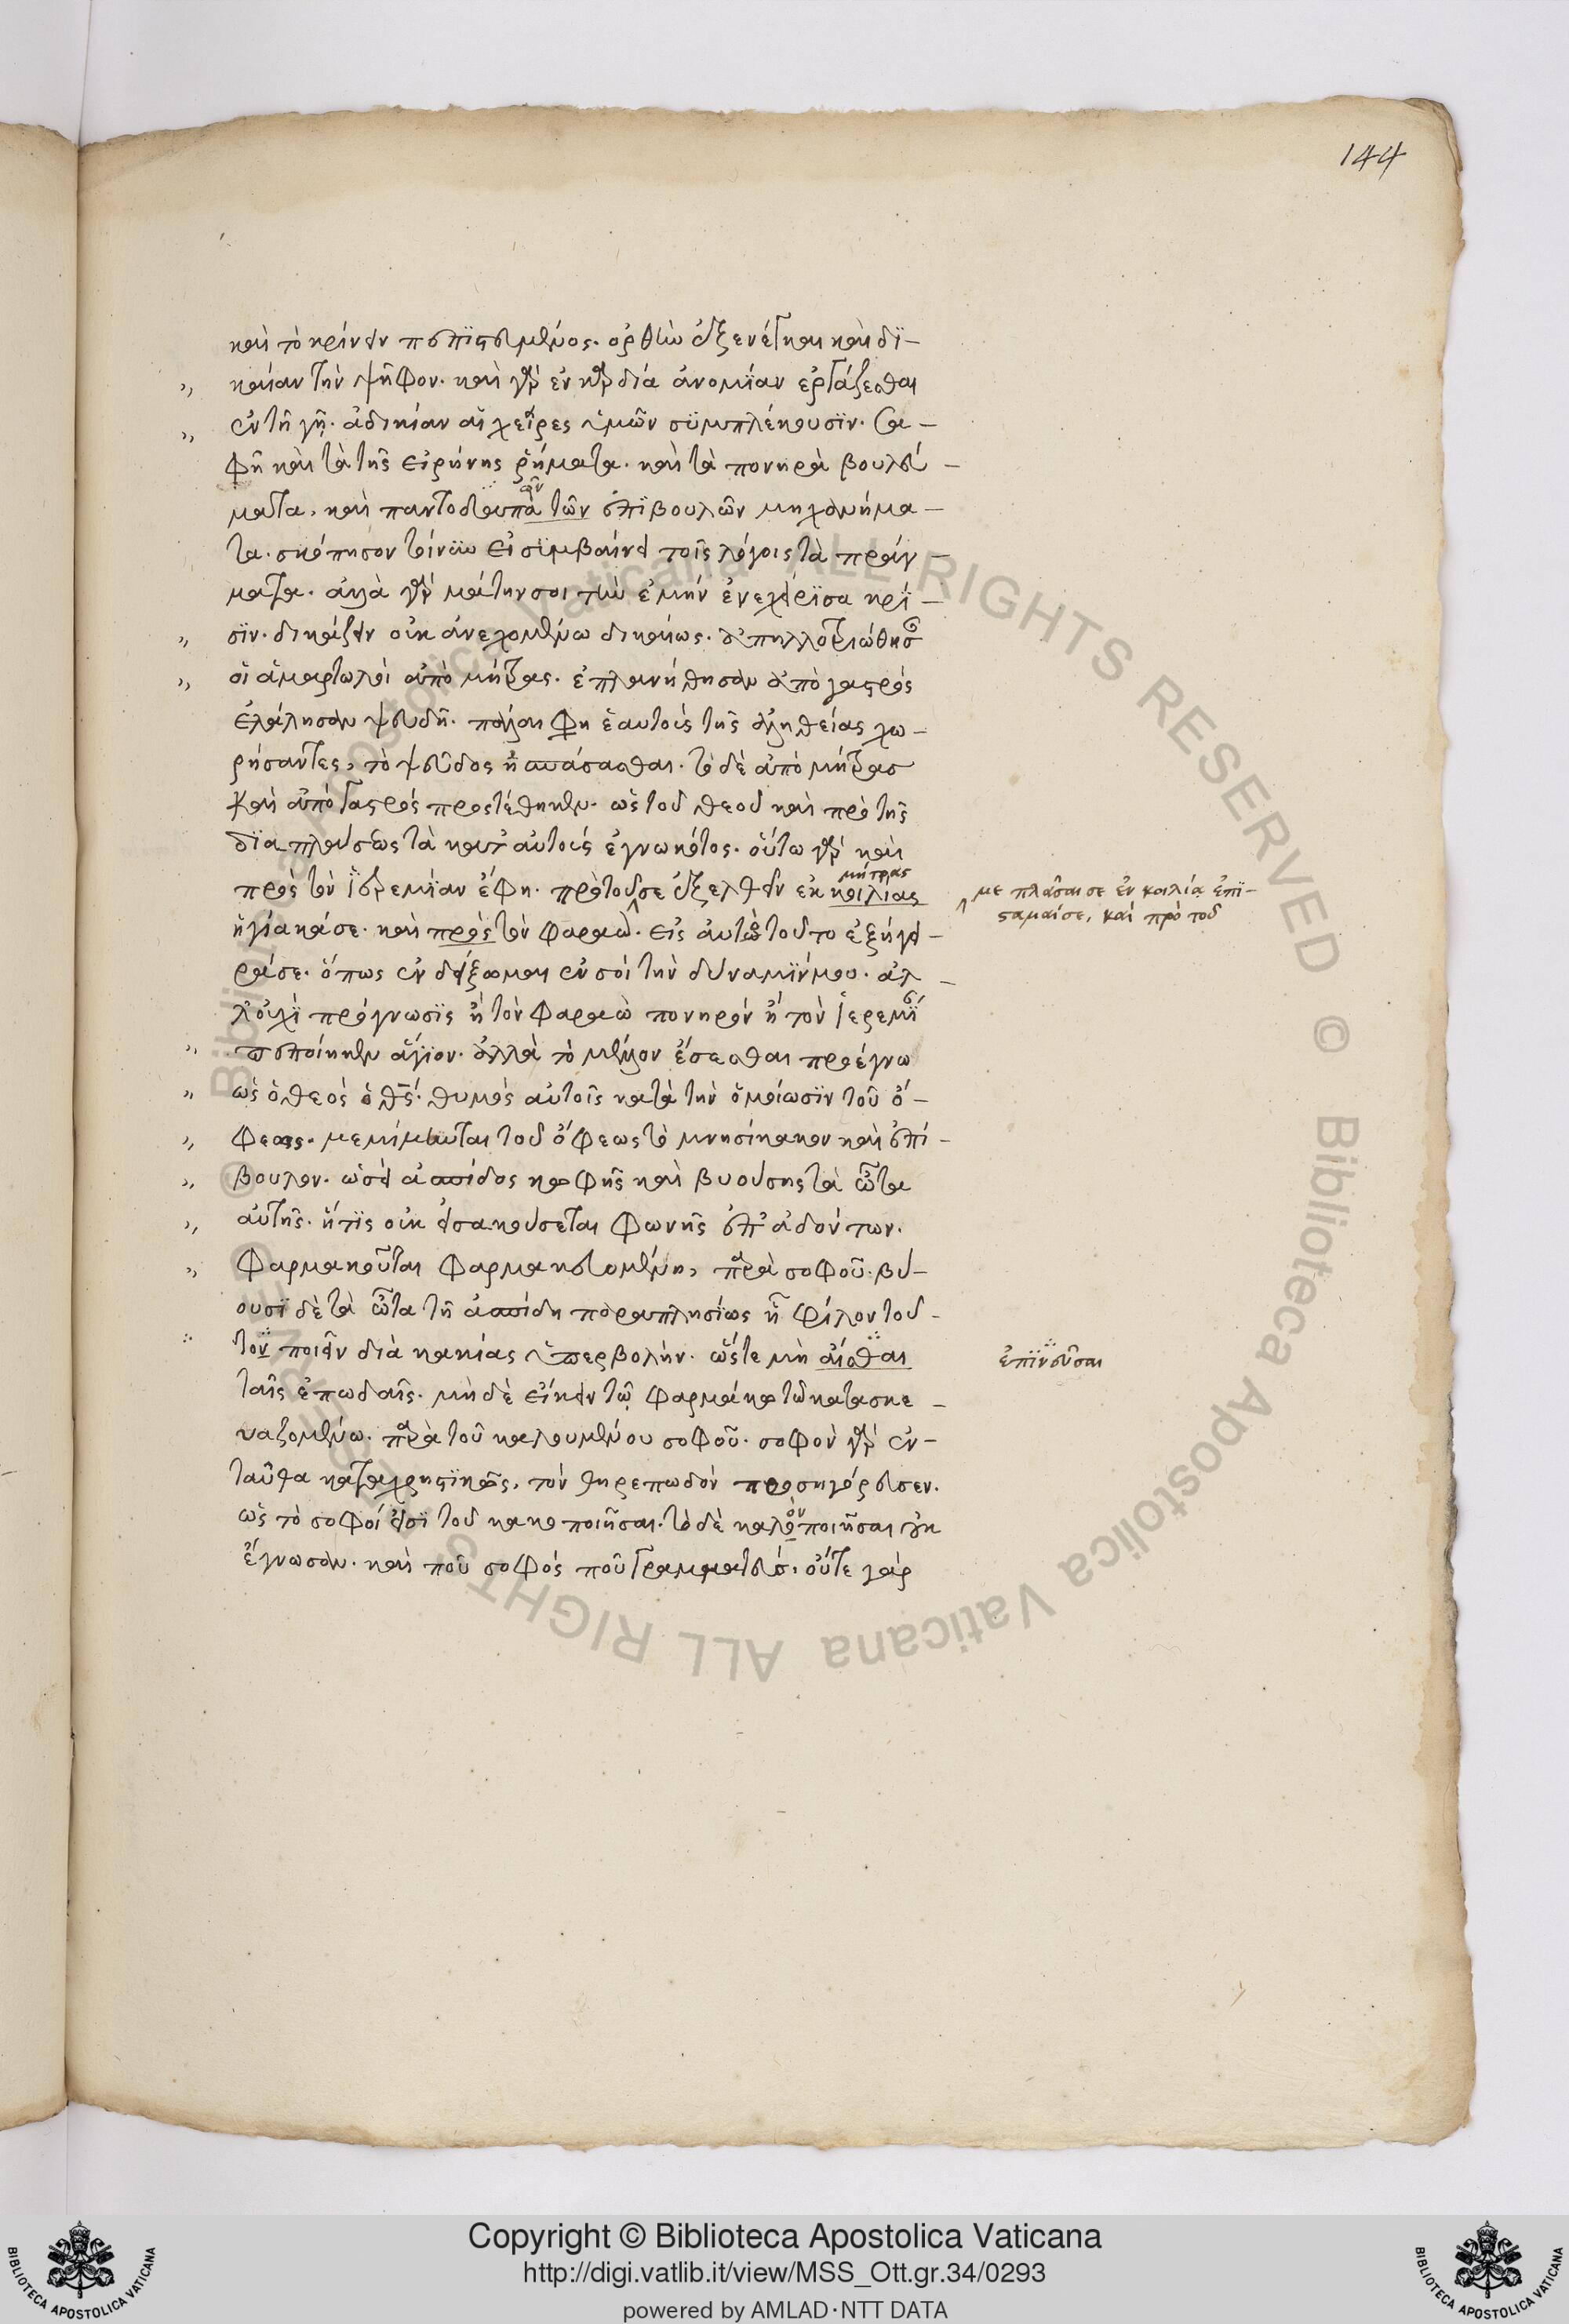 144
καὶ τὸ κρίνειν πεπιστευμένος. ὀρθὴν ἐξενέγκαι καὶ δϊ-
καίαν τὴν ψῆφον. καὶ γὰρ ἐν καρδία ἀνομΐαν ἐργάζεσθαι
ἐν τῆ γῆ. ἀδικίαν αἱ χεῖρες ὑμῶν σϋμπλέκουσϊν. σα-
φῆ καὶ τὰ τῆς εἰρήνης ῥήματα. καὶ τὰ πονηρὰ βουλεύ-
ματα, καὶ παντοδαπὰ τῶν ἐπϊβουλῶν μηχανήμα-
τα. σκόπησον τοίνυν εἰ σϋμβαίνει τοῖς λόγοις τὰ πράγ-
ματα. ἀλλὰ γὰρ μάτην σοι τὴν ἐμὴν ἐνεχείρϊσα κρί-
σϊν. δικάζειν οὐκ ἀνεχομένω δικαίως. ἀπηλλοτριώθησαν
οἱ ἁμαρτωλοὶ ἀπὸ μήτρας. ἐπλανήθησαν ἀπὸ γαστρός
ἐλάλησαν ψευδῆ. πάλαι φη ἑαυτοὺς τῆς ἀληθείας χω-
ρήσαντες, τὸ ψεῦδος ἠσπάσασθαι. τὸ δὲ ἀπὸ μήτρας
καὶ ἀπὸ γαστρός προστέθηκεν. ὡς τοῦ θεοῦ καὶ πρὸ τῆς
δϊαπλάσεως τὰ κατ' αὐτοὺς ἐγνωκότος. οὕτω γὰρ καὶ
πρὸς τὸν ϊερεμΐαν ἔφη. πρὸ τοῦ σε ἐξελθεῖν ἐκ κοιλίας
μήτρας
με πλᾶσαι σε ἐν κοιλία ἐπΐ-
σταμαί σε, καὶ πρὸ τοῦ
ἡγίακά σε. καὶ πρὸς τὸν φαραώ. εἰς αὐτὸ τοῦτο ἐξήγει-
ρά σε. ὅπως ἐνδείξωμαι ἐν σοὶ τὴν δύναμΐν μου. ἀλ-
λ' οὐχὶ πρόγνωσϊς ἢ τὸν φαραὼ πονηρὸν ἢ τὸν ἱερεμΐαν
πεποίηκεν ἅγϊον. ἀλλὰ τὸ μέλλον ἔσεσθαι προέγνω
ὡς ὁ θεὸς ὁ θς. θυμὸς αὐτοῖς κατὰ τὴν ὁμοίωσϊν τοῦ ὄ-
φεως. μεμίμηνται τοῦ ὄφεως τὸ μνησίκακον καὶ ἐπί-
βουλον. ὡσεὶ ἀσπίδος κωφῆς καὶ βυούσης τὰ ὦτα
αὐτῆς. ἥτϊς οὐκ εἰσακούσεται φωνῆς ἐπᾳδόντων.
φαρμακοῦται φαρμακευομένη, παρὰ σοφοῦ. βύ-
ουσϊ δὲ τὰ ὦτα τῆ ἀσπίδη παραπλησΐως ἢ φίλον τοῦ
τον ποιεῖν διὰ κακίας ὑπερβολήν. ὥστε μὴ αἰσθαι
ἐπϊνεῦσαι
ταῖς ἐπωδαῖς. μὴ δὲ εἴκειν τῶ φαρμάκω τῶ κατασκε-
υαζομένω. παρὰ τοῦ καλουμένου σοφοῦ. σοφὸν γὰρ ἐν-
ταῦθα καταχρηστϊκῶς, τὸν θηρεπωδὸν προσηγόρευσεν.
ὡς τὸ σοφοί εἰσϊ τοῦ κακοποιῆσαι. τὸ δὲ καλὸν ποιῆσαι οὐκ
ἔγνωσαν. καὶ ποῦ σοφὸς ποῦ γραμματεύς. οὔτε γάρ
Copyright © Biblioteca Apostolica Vaticana
http://digi.vatlib.it/view/MSS_Ott.gr.34/0293
powered by AMLAD·NTT DATA